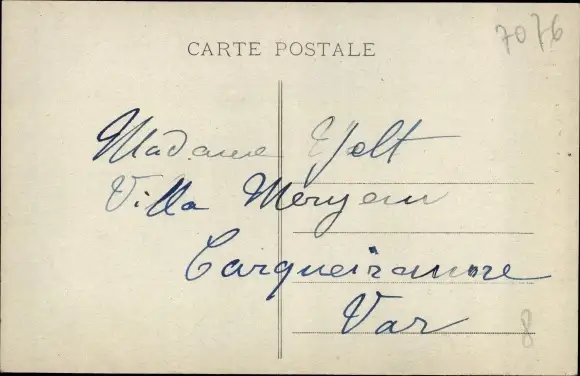 7076
CARTE POSTALE
Madame Yelt
Villa Meryem
Carqueiranne
Var
8